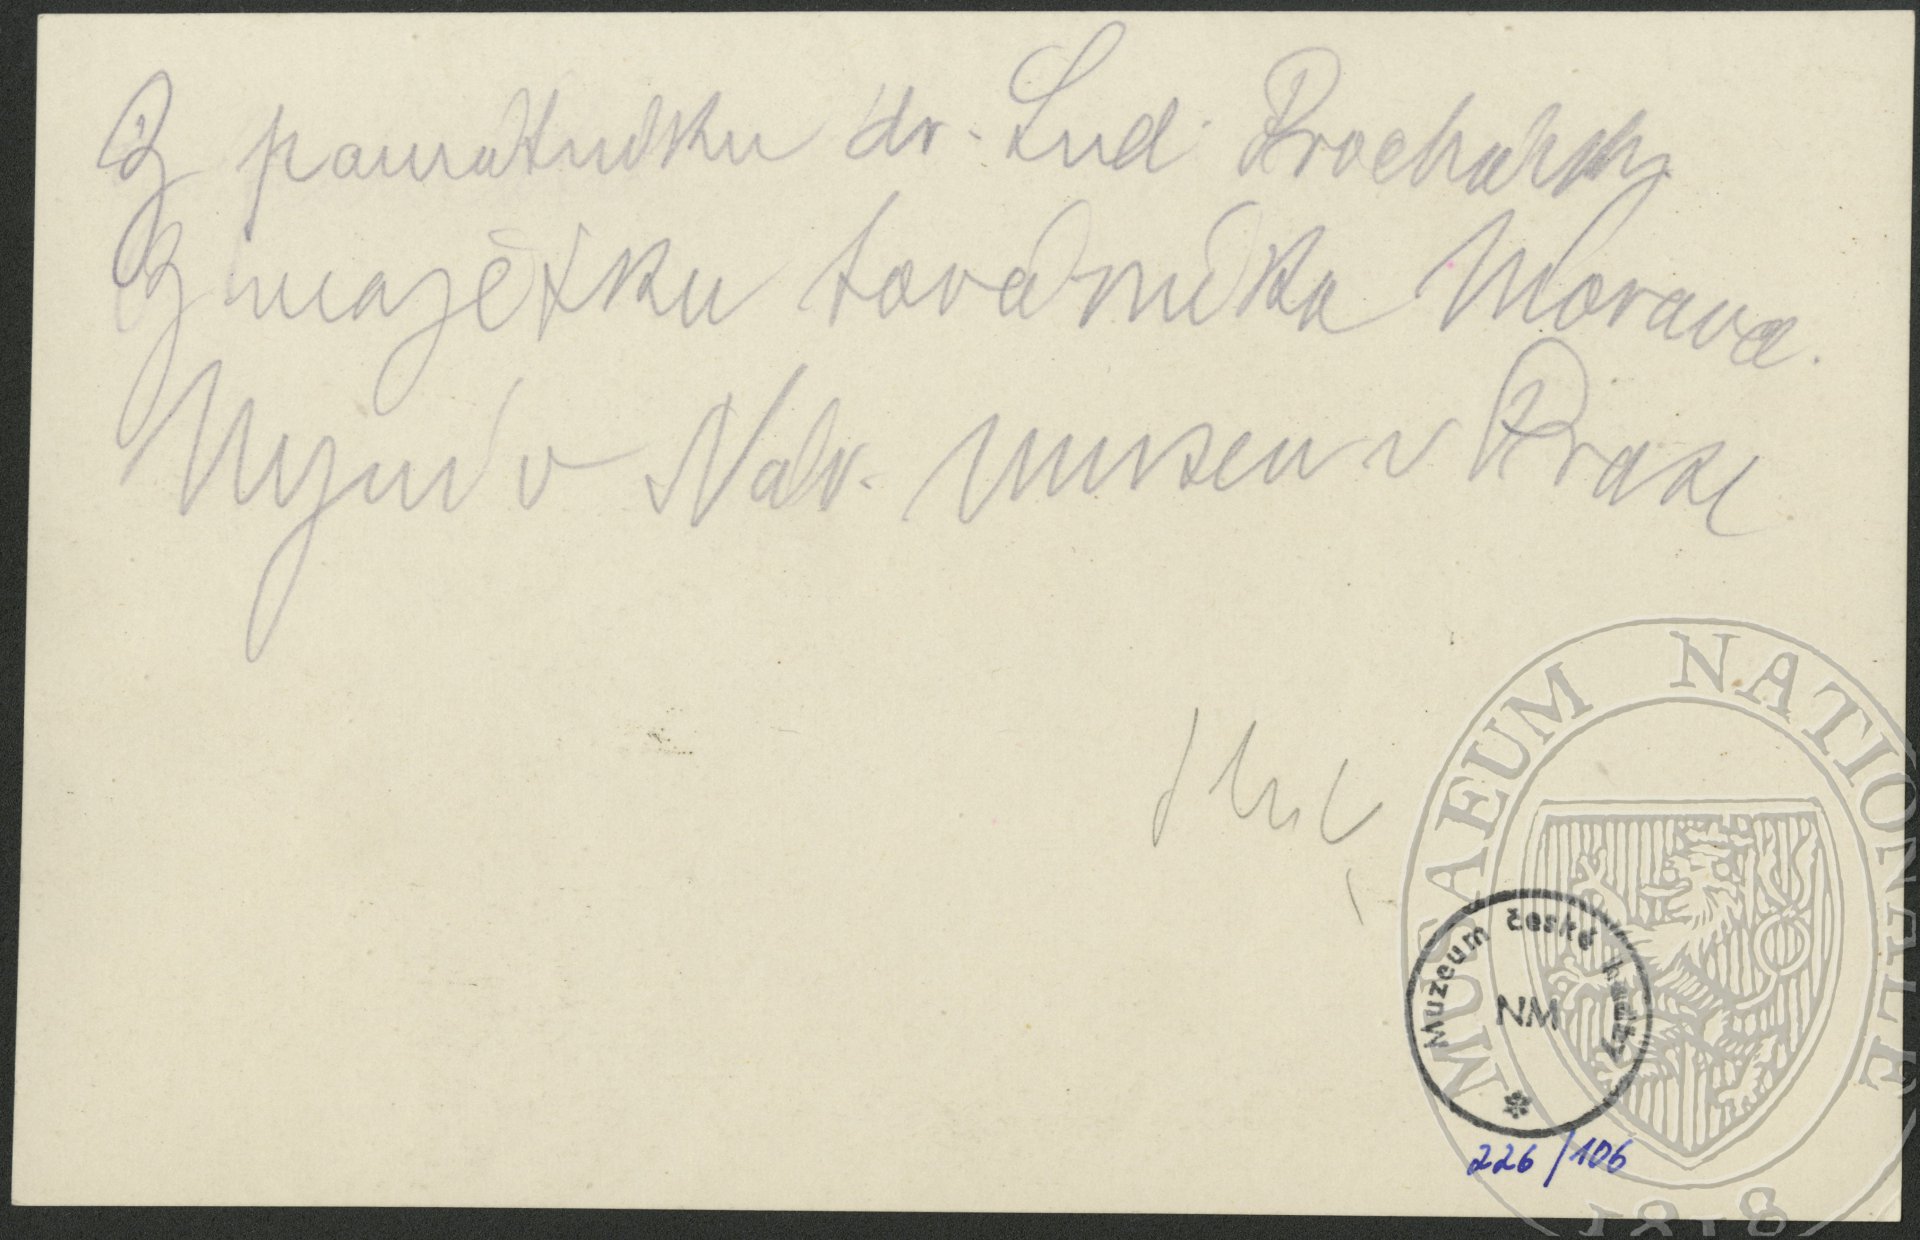 Z památníku dr. Lud. Procházky
Z majetku továrníka Morava.
Nyní v Nár. museu v Praze
MUSAEUM NATIONALE
Muzeum české hudby
NM
226/106
1818